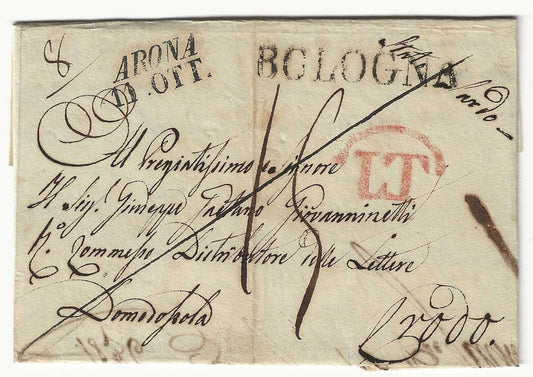 8
ARONA
11 OTT.
BOLOGNA
Stati Sardo
LT
Al Pregiatissimo Signore
Il Sig. Giuseppe Gaetano Giovanninetti
Commesso Distributore delle Lettere
Domodossola
Crodo.
15